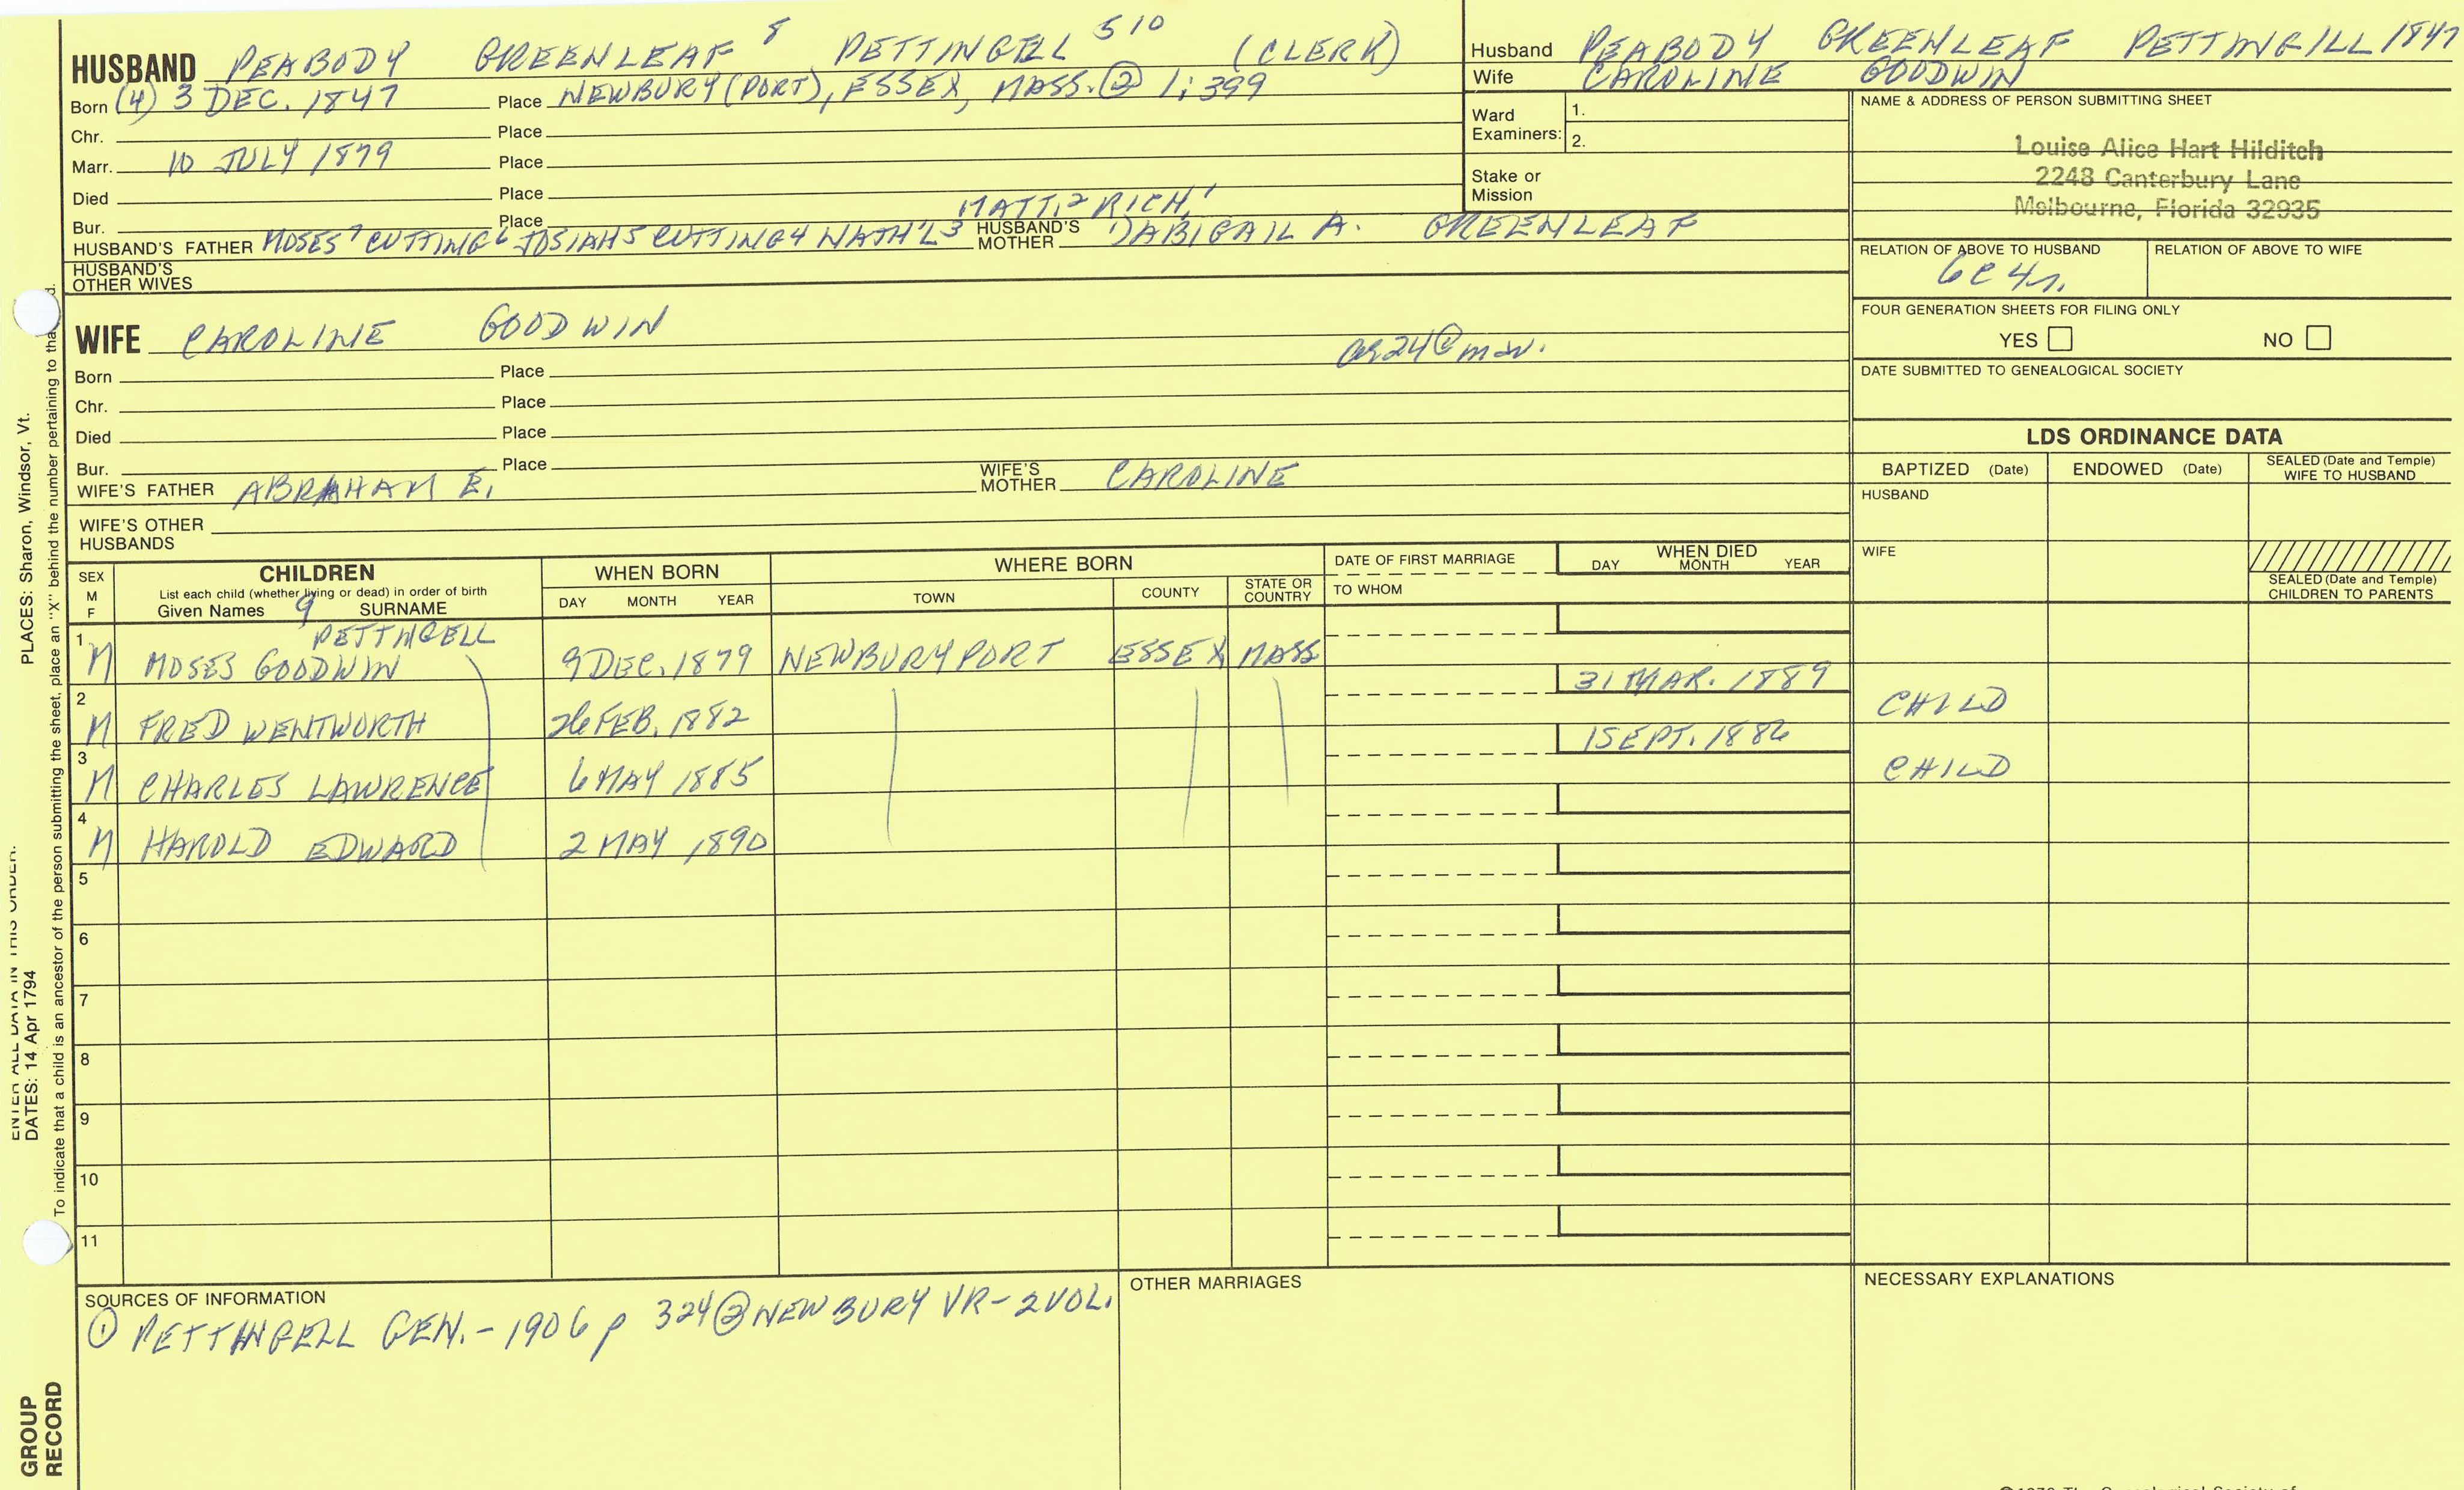 HUSBAND PEABODY GREENLEAF 8 PETTINGELL 510 (CLERK)
Born (4) 3 DEC. 1847 Place NEWBURY(PORT), ESSEX, MASS. ② 1:399
Chr. Place
Marr. 10 JULY 1879 Place
Died Place
Bur. Place MATT.2 RICH.1
HUSBAND'S FATHER MOSES7 CUTTING6 JOSIAH5 CUTTING4 NATH'L3 HUSBAND'S MOTHER ABIGAIL A. GREENLEAF
HUSBAND'S OTHER WIVES
WIFE CAROLINE GOODWIN
24@
Born Place
Chr. Place
Died Place
Bur. Place
WIFE'S FATHER ABRAHAM E. WIFE'S MOTHER CAROLINE
WIFE'S OTHER HUSBANDS
Husband PEABODY GREENLEAF PETTINGILL 1847
Wife CAROLINE GOODWIN
Ward Examiners: 1.
2.
Stake or Mission
NAME & ADDRESS OF PERSON SUBMITTING SHEET
Louise Alice Hart Hilditch
2248 Canterbury Lane
Melbourne, Florida 32935
RELATION OF ABOVE TO HUSBAND RELATION OF ABOVE TO WIFE
6C4r.
FOUR GENERATION SHEETS FOR FILING ONLY
YES NO
DATE SUBMITTED TO GENEALOGICAL SOCIETY
LDS ORDINANCE DATA
BAPTIZED (Date) ENDOWED (Date) SEALED (Date and Temple) WIFE TO HUSBAND
HUSBAND
WIFE
SEALED (Date and Temple) CHILDREN TO PARENTS
SEX M F
CHILDREN
List each child (whether living or dead) in order of birth
Given Names 9 SURNAME
WHEN BORN
DAY MONTH YEAR
WHERE BORN
TOWN COUNTY STATE OR COUNTRY
DATE OF FIRST MARRIAGE
TO WHOM
WHEN DIED
DAY MONTH YEAR
PETTINGELL
1 M MOSES GOODWIN 9 DEC. 1879 NEWBURYPORT ESSEX MASS
2 M FRED WENTWORTH 26 FEB. 1882 31 MAR. 1889 CHILD
3 M CHARLES LAWRENCE 6 MAY 1885 1 SEPT. 1886 CHILD
4 M HAROLD EDWARD 2 MAY 1890
5
6
7
8
9
10
11
SOURCES OF INFORMATION
① PETTINGELL GEN.-1906 p 324 ② NEWBURY VR-2VOL.
OTHER MARRIAGES
NECESSARY EXPLANATIONS
PLACES: Sharon, Windsor, Vt.
ENTER ALL DATA IN THIS ORDER:
DATES: 14 Apr 1794
To indicate that a child is an ancestor of the person submitting the sheet, place an "X" behind the number pertaining to that
GROUP RECORD